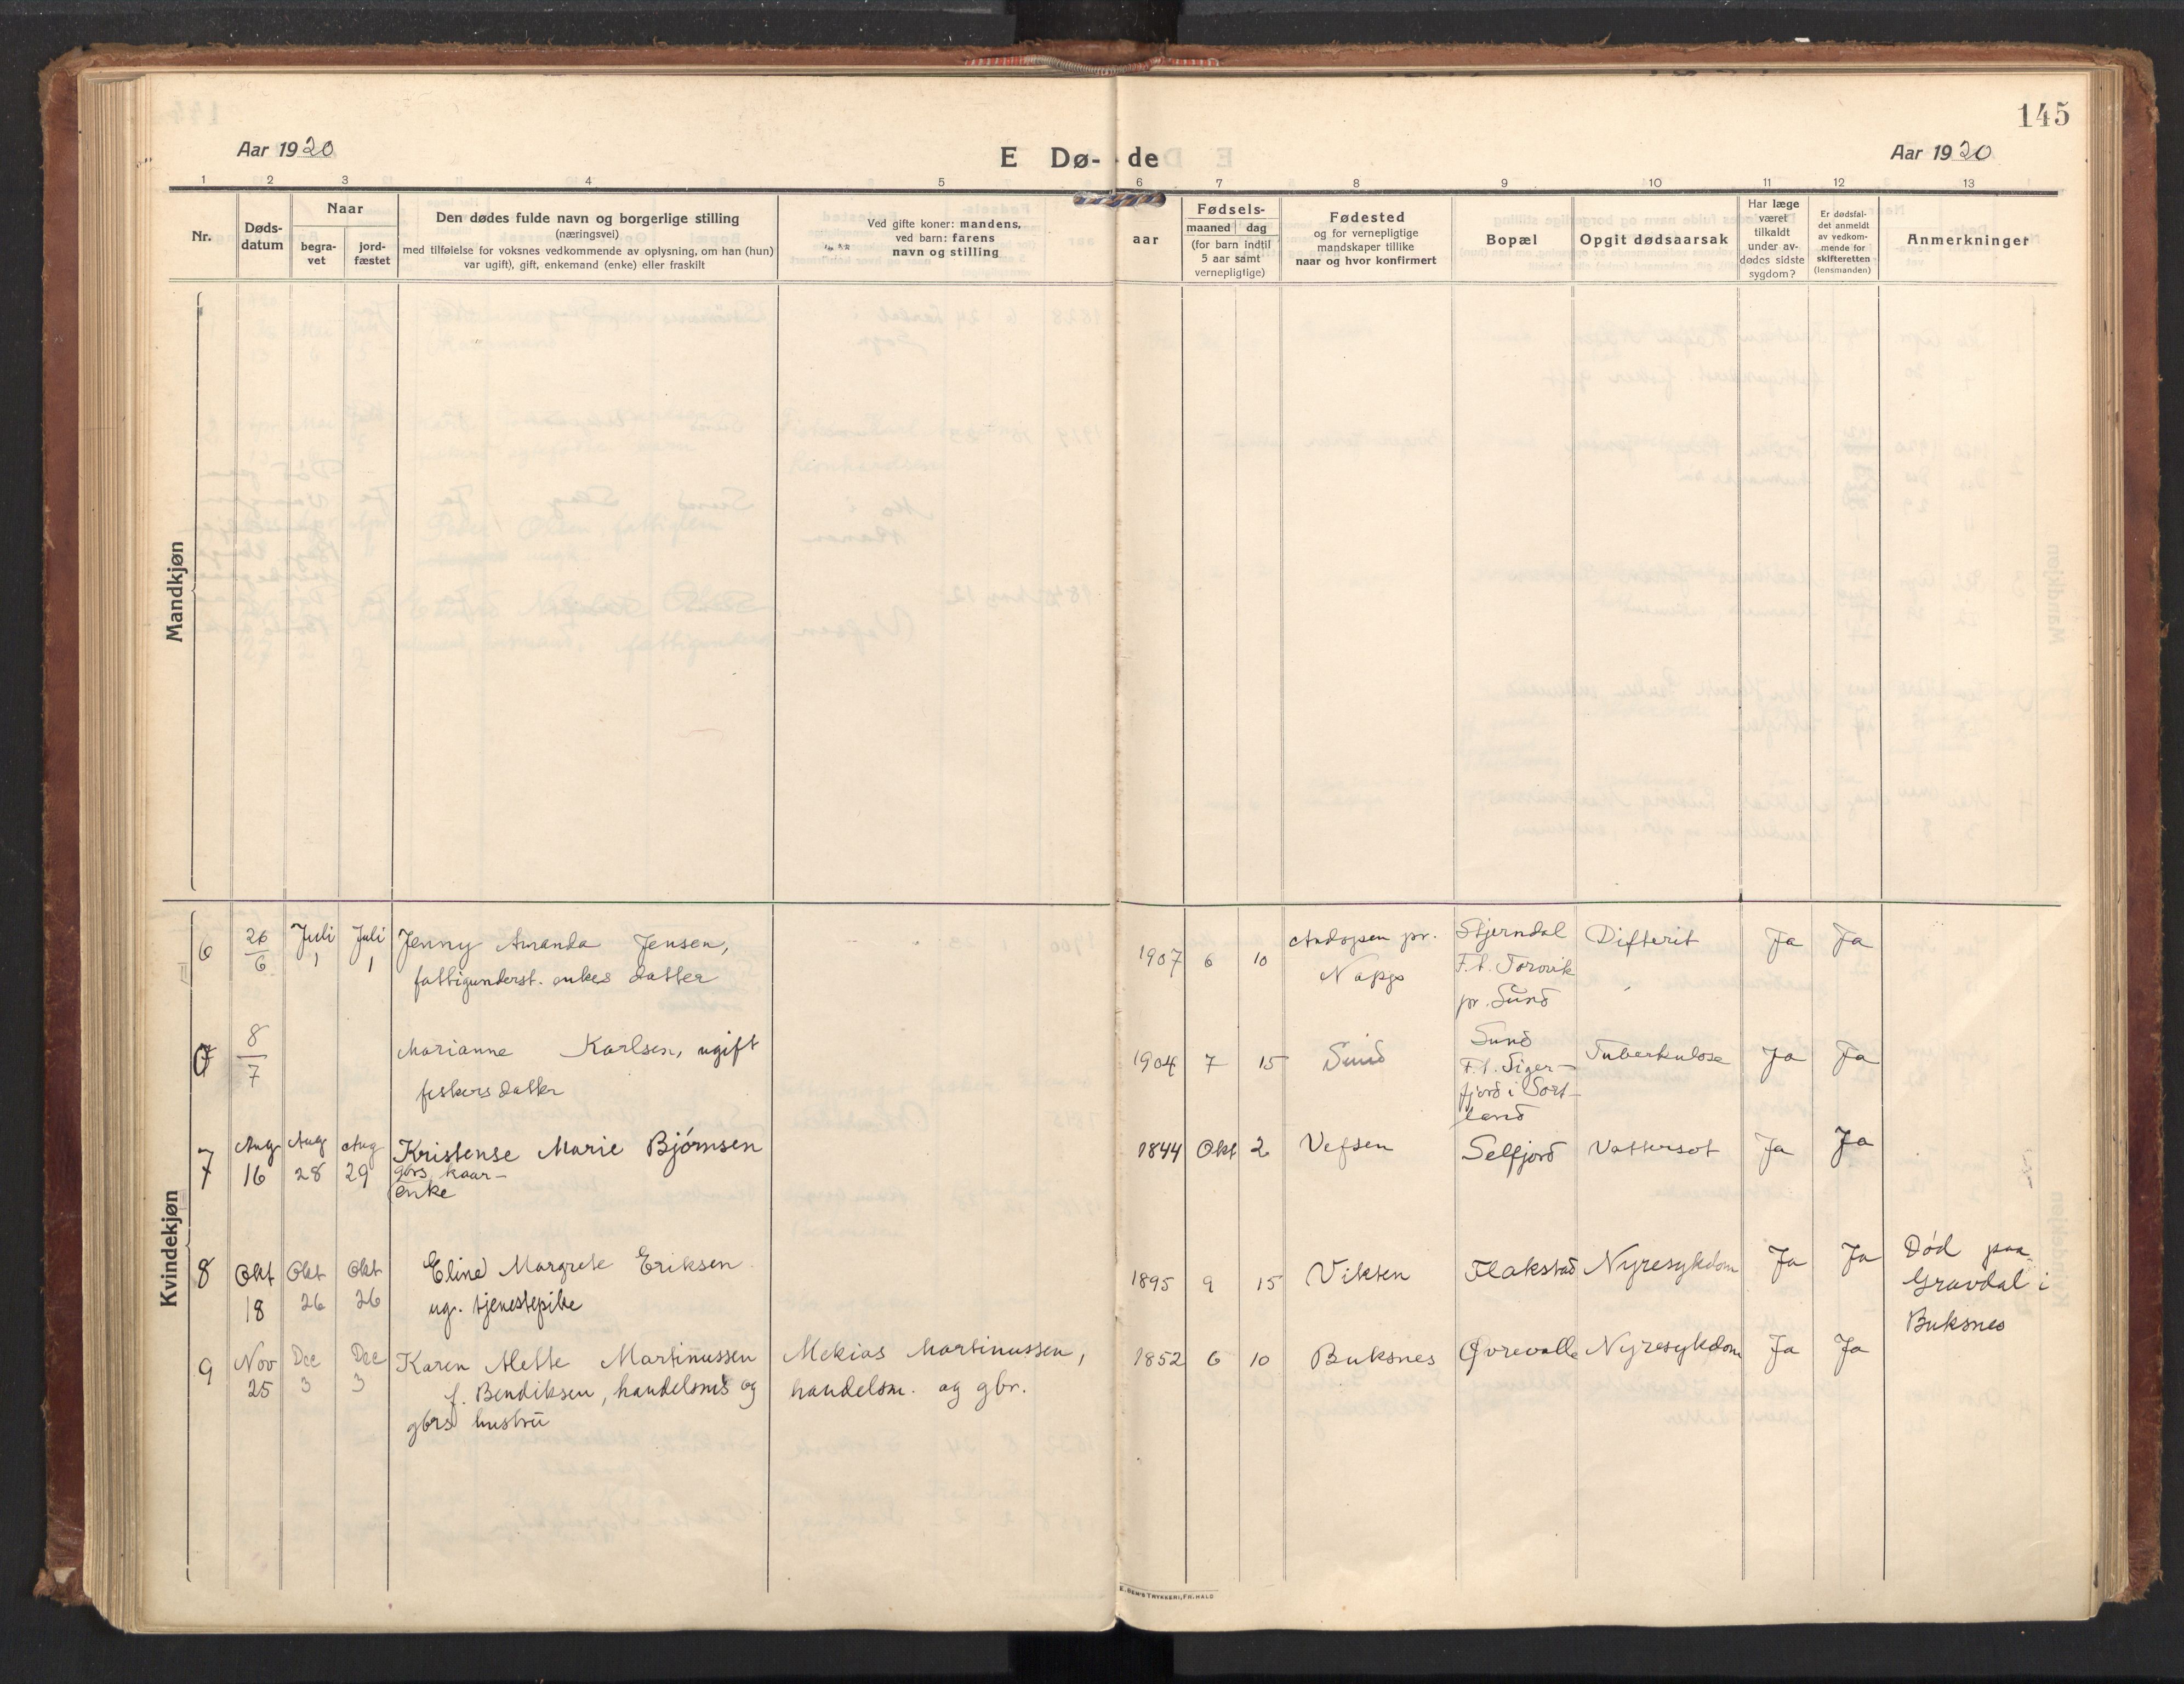 145
Aar 1920
E Dø- de
Aar 1920
1 2 3 4 5 6 7 8 9 10 11 12 13
Nr.
Døds-
datum
Naar
begra-
vet
jord-
fæstet
Den dødes fulde navn og borgerlige stilling
(næringsvei)
med tilføielse for voksnes vedkommende av oplysning, om han (hun)
var ugift), gift, enkemand (enke) eller fraskilt
Ved gifte koner: mandens,
ved barn: farens
navn og stilling
aar
Fødsels-
maaned dag
(for barn indtil
5 aar samt
vernepligtige)
Fødested
og for vernepligtige
mandskaper tillike
naar og hvor konfirmert
Bopæl
Opgit dødsaarsak
Har læge
været
tilkaldt
under av-
dødes sidste
sygdom?
Er dødsfal-
det anmeldt
av vedkom-
mende for
skifteretten
(lensmanden)
Anmerkninger
Mandkjøn
Kvindekjøn
6 26/6 Juli 1 Juli 1 Jenny Amanda Jensen,
fattigunderst. enkes datter
1907 6 10 Andopen pr.
Napp
Stjerndal
F. t. Torvik
pr. Sund
Difterit Ja Ja
8/7 Marianne Karlsen, ugift
fiskersdatter
1904 7 15 Sund
Sund
F. t. Siger-
fjord i Sort-
land
Tuberkulose Ja Ja
7 Aug 16 Aug 28 Aug 29 Kristense Marie Bjørnsen
gbrs kaar-
enke
1844 Okt 2 Vefsen Selfjord Vattersot Ja Ja
8 Okt 18 Okt 26 Okt 26 Eline Margrete Eriksen
ug. tjenestepike
1895 9 15 Vikten Flakstad Nyresykdom Ja Ja
Død paa
Gravdal i
Buksnes
9 Nov 25 Dec 3 Dec 3 Karen Mette Martinussen
f. Bendiksen, handelsms og
gbrs hustru
Mekias Martinussen,
handelsm. og gbr.
1852 6 10 Buksnes Øvrevolle Nyresykdom Ja Ja